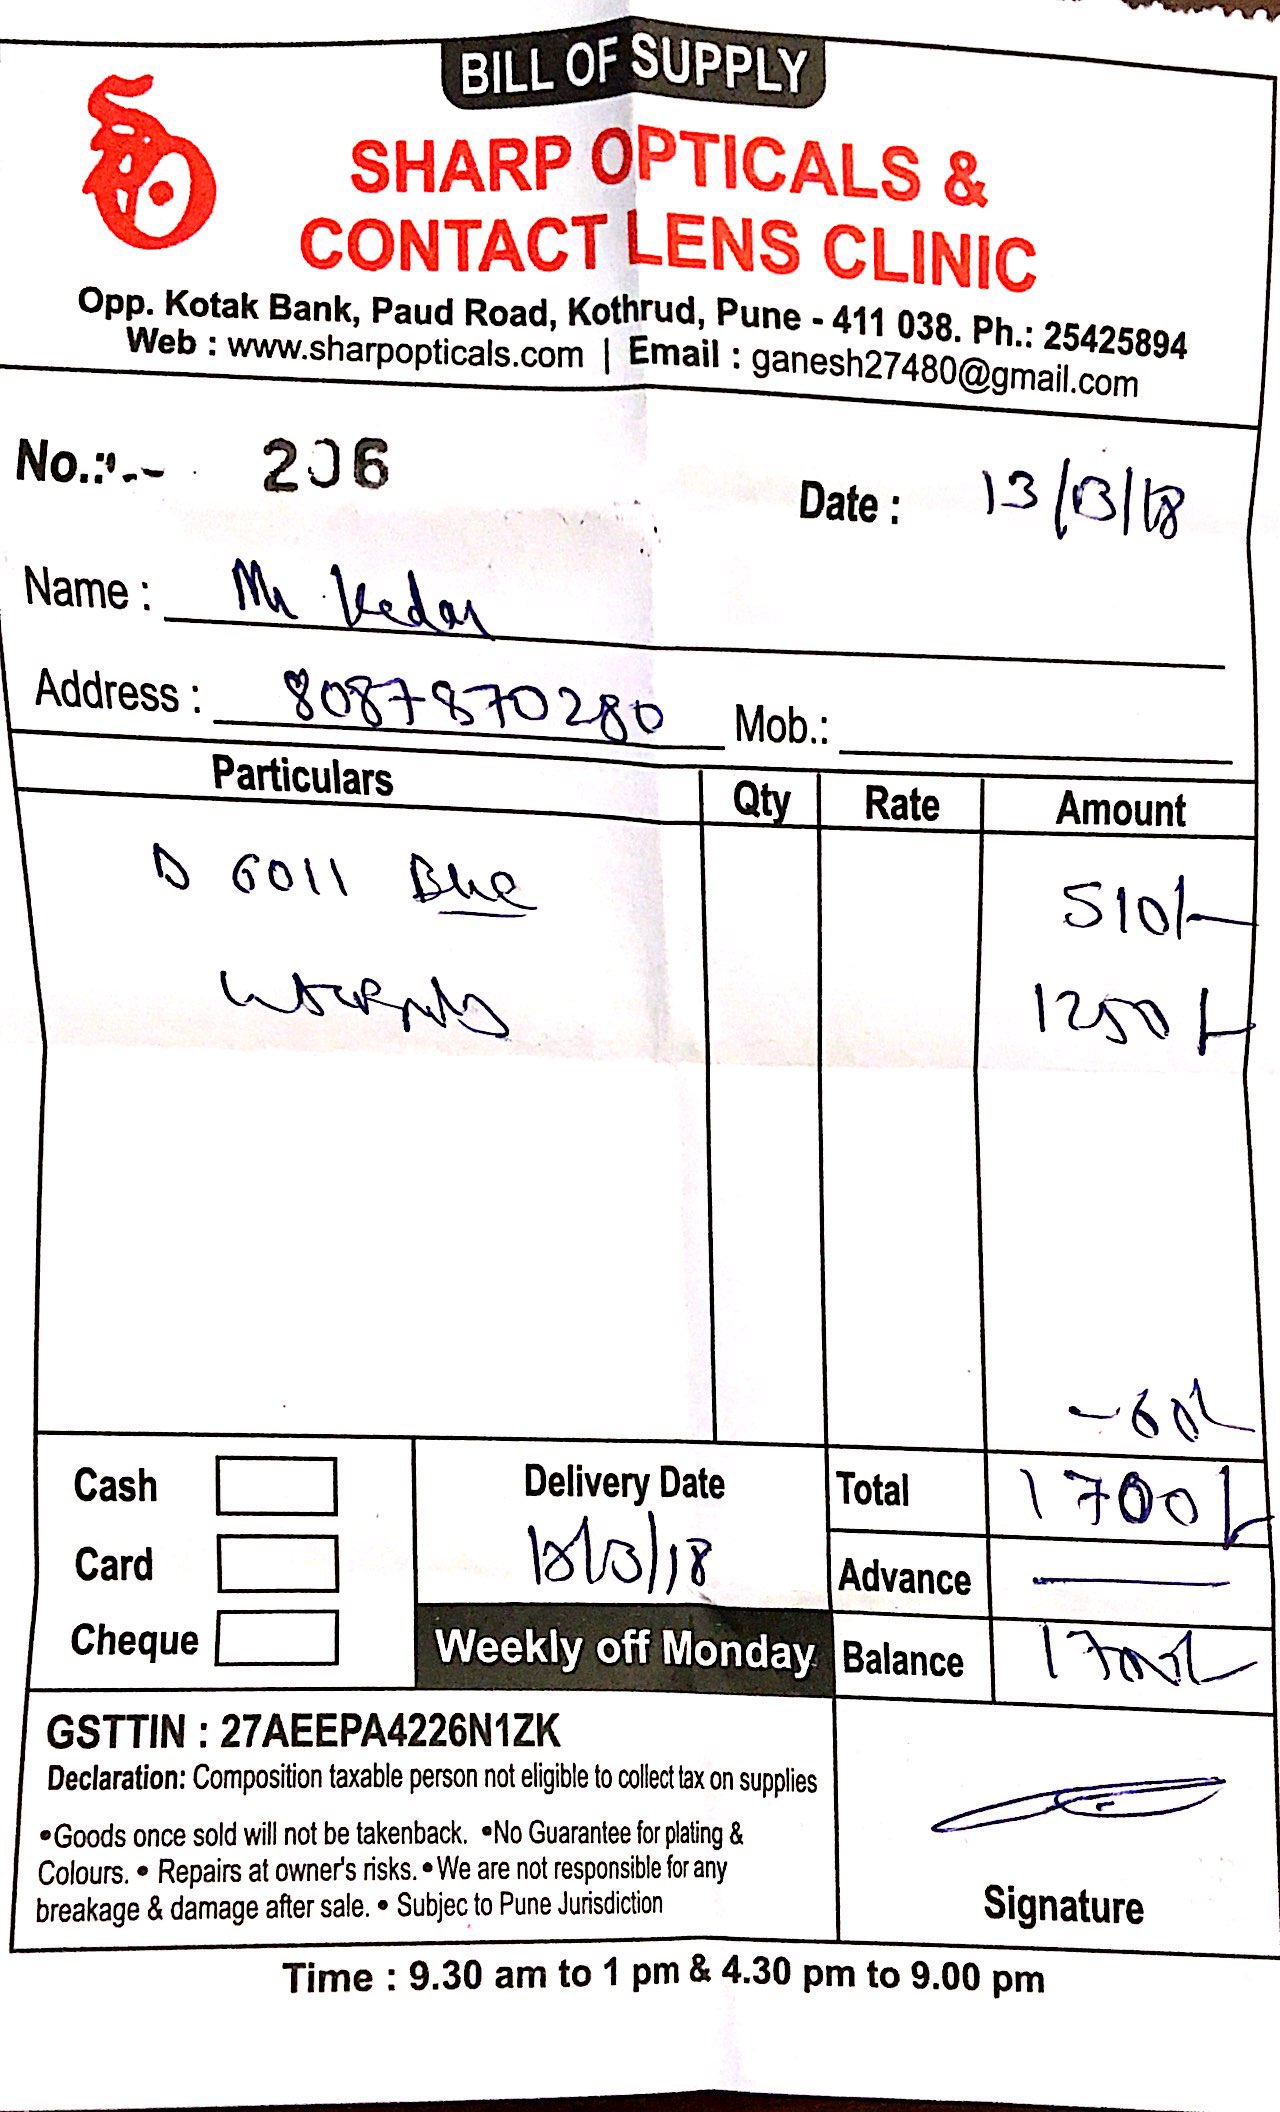 BILL OF SUPPLY
SHARP OPTICALS &
CONTACT LENS CLINIC
Opp. Kotak Bank, Paud Road, Kothrud, Pune - 411 038. Ph.: 25425894
Web : www.sharpopticals.com | Email : ganesh27480@gmail.com
No.: 206
Date : 13/3/18
Name : Mr Kedar
Address : 8087870280 Mob.:
Particulars Qty Rate Amount
D 6011 Blue 510/-
1250/-
-60/-
Cash Delivery Date Total 1700/-
Card 18/3/18 Advance —
Cheque Weekly off Monday Balance 1700/-
GSTTIN : 27AEEPA4226N1ZK
Declaration: Composition taxable person not eligible to collect tax on supplies
•Goods once sold will not be takenback. •No Guarantee for plating &
Colours. • Repairs at owner's risks. •We are not responsible for any
breakage & damage after sale. • Subjec to Pune Jurisdiction
Signature
Time : 9.30 am to 1 pm & 4.30 pm to 9.00 pm